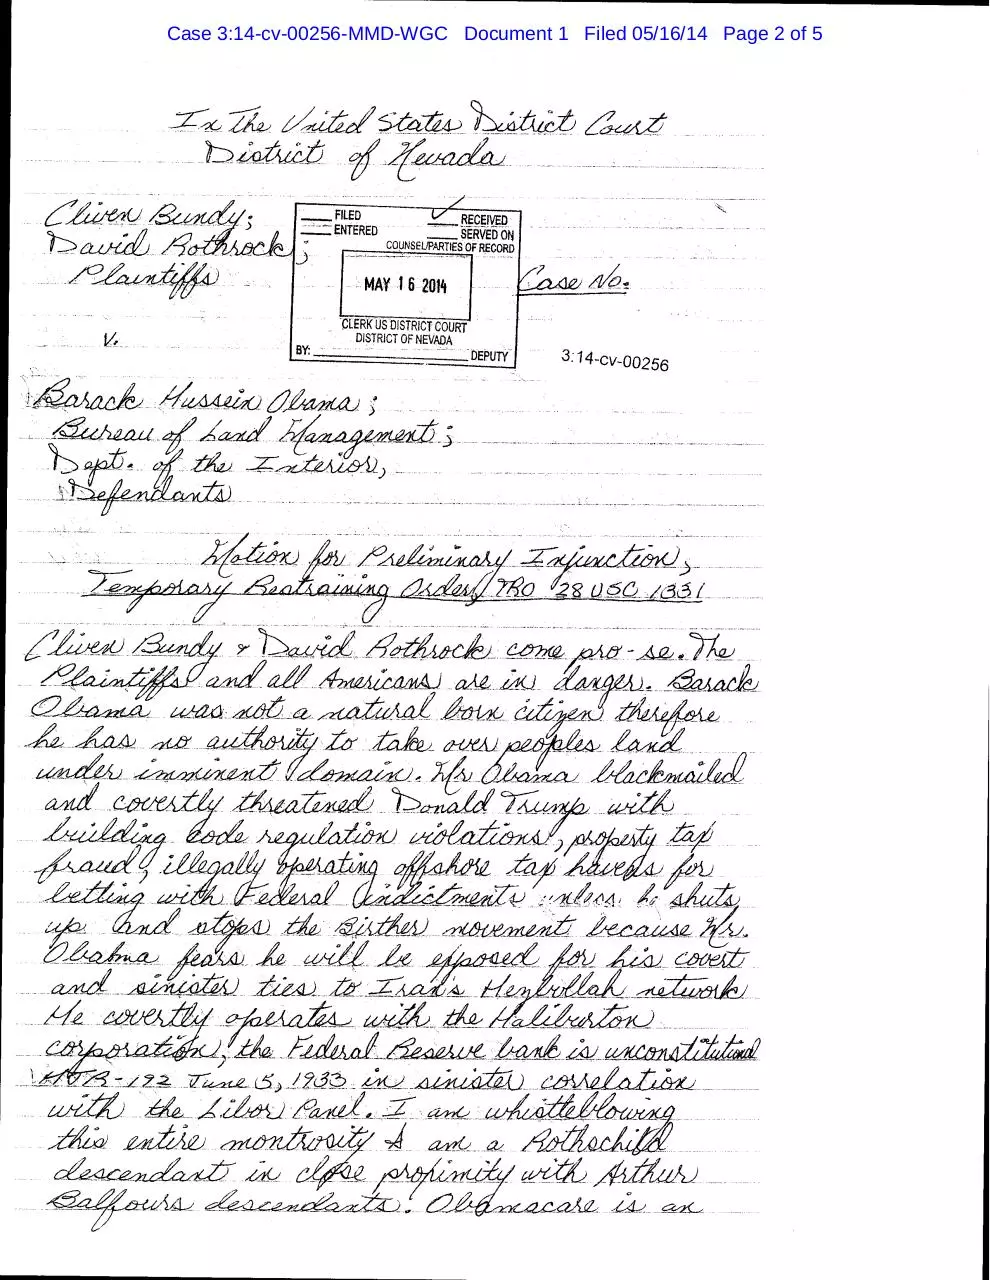 Case 3:14-cv-00256-MMD-WGC Document 1 Filed 05/16/14 Page 2 of 5
In The United States District Court
District of Nevada
Cliven Bundy;
David Rothrock;
Plaintiffs
FILED
ENTERED
RECEIVED
SERVED ON
COUNSEL/PARTIES OF RECORD
MAY 16 2014
CLERK US DISTRICT COURT
DISTRICT OF NEVADA
BY: DEPUTY
Case No.
3:14-cv-00256
v.
Barack Hussein Obama;
Bureau of Land Management;
Dept. of the Interior,
Defendants
Motion for Preliminary Injunction,
Temporary Restraining Order/TRO 28 USC 1331
Cliven Bundy & David Rothrock come pro-se. The
Plaintiffs and all Americans are in danger. Barack
Obama was not a natural born citizen therefore
he has no authority to take over peoples land
under imminent domain. Mr Obama blackmailed
and covertly threatened Donald Trump with
building code regulation violations, property tax
fraud, illegally operating offshore tax havens for
betting with Federal indictments unless he shuts
up and stops the Birther movement because Mr.
Obama fears he will be exposed for his covert
and sinister ties to Iran's Hezbollah network
He covertly operates with the Haliburton
corporation, the Federal Reserve bank is unconstitutional
HJR-192 June 5, 1933 in sinister correlation
with the Libor Panel. I am whistleblowing
this entire montrosity & am a Rothschild
descendant in close proximity with Arthur
Balfours descendants. Obamacare is an